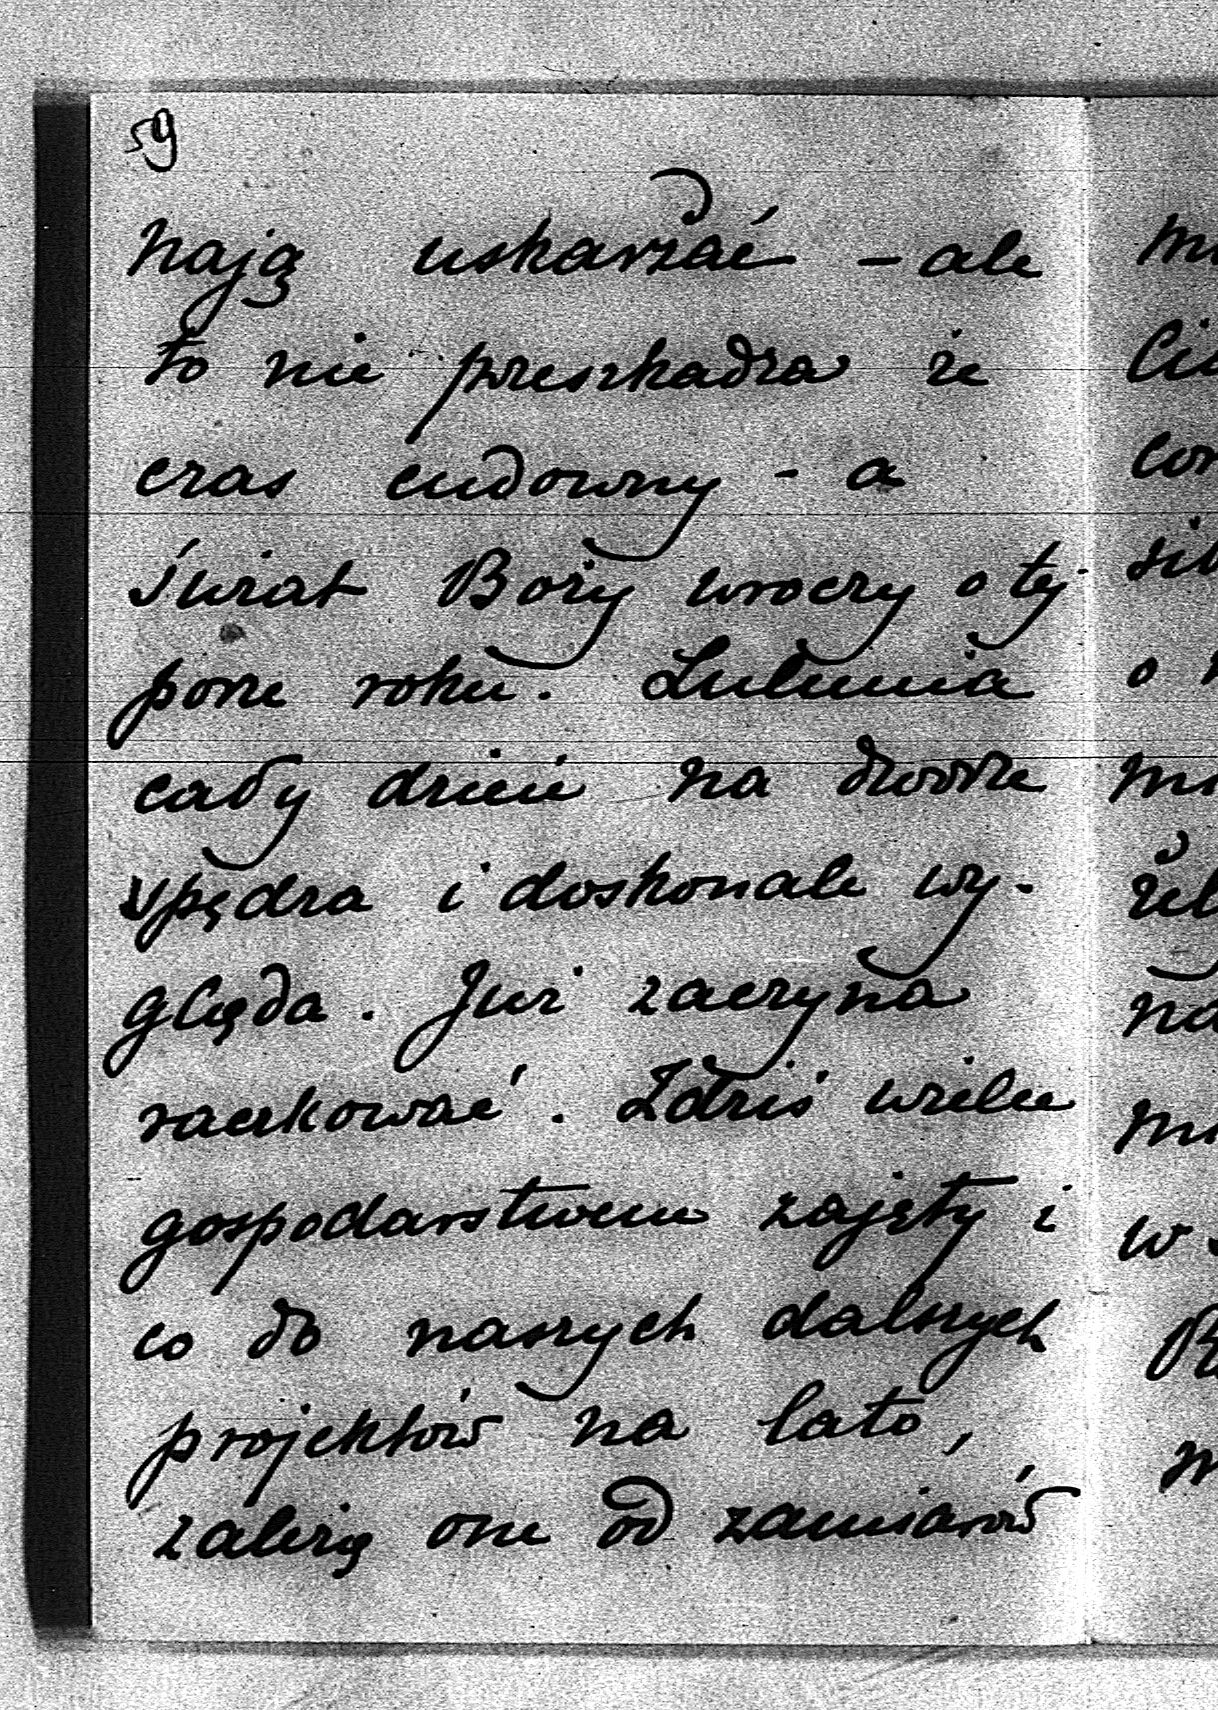 59
nają uskarżać – ale
to nie przeszkadza że
czas cudowny – a
świat Boży uroczy o tej
porze roku. Lulunia
cały dzień na dworze
spędza i doskonale wy-
gląda. Już zaczyna
raczkować. Zdziś wielce
gospodarstwem zajęty i
co do naszych dalszych
projektów na lato,
zależą one od zamiarów